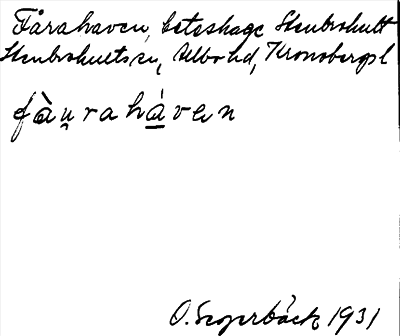 Fårahaven, beteshage Stenbrohult
Stenbrohults sn, Allbo hd, Kronobergs l
fàu̯rahá̱ven
O. Segerbäck 1931